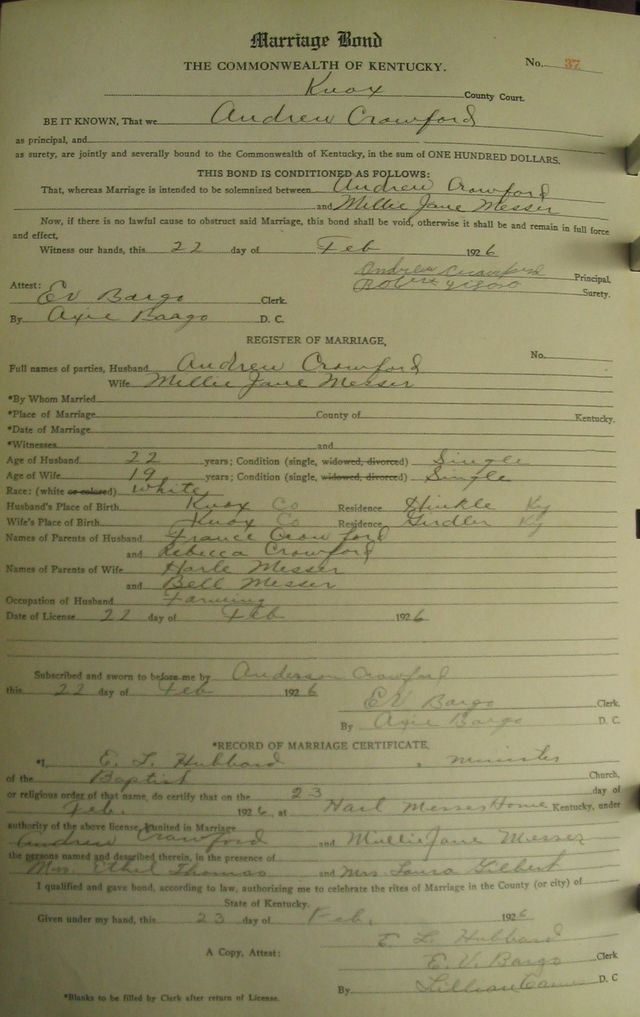 Marriage Bond
THE COMMONWEALTH OF KENTUCKY. No. 37
Knox County Court.
BE IT KNOWN, That we Andrew Crawford
as principal, and
as surety, are jointly and severally bound to the Commonwealth of Kentucky, in the sum of ONE HUNDRED DOLLARS.
THIS BOND IS CONDITIONED AS FOLLOWS:
That, whereas Marriage is intended to be solemnized between Andrew Crawford
and Millie Jane Messer
Now, if there is no lawful cause to obstruct said Marriage, this bond shall be void, otherwise it shall be and remain in full force
and effect,
Witness our hands, this 22 day of Feb 1926
Andrew Crawford Principal,
Attest: Robert Surety.
EV Bargo Clerk.
By Axie Bargo D. C.
REGISTER OF MARRIAGE,
No.
Full names of parties, Husband Andrew Crawford
Wife Millie Jane Messer
*By Whom Married
*Place of Marriage County of Kentucky.
*Date of Marriage
*Witnesses and
Age of Husband 22 years; Condition (single, widowed, divorced) Single
Age of Wife 19 years; Condition (single, widowed, divorced) Single
Race: (white or colored) White
Husband's Place of Birth Knox Co Residence Hinkle Ky
Wife's Place of Birth Knox Co Residence Girdler Ky
Names of Parents of Husband France Crawford
and Rebecca Crawford
Names of Parents of Wife Harle Messer
and Bell Messer
Occupation of Husband Farming
Date of License 22 day of Feb 1926
Subscribed and sworn to before me by Anderson Crawford
this 22 day of Feb 1926
EV Bargo Clerk.
By Axie Bargo D. C.
*RECORD OF MARRIAGE CERTIFICATE.
*I, E. L. Hubbard, minister
of the Baptist Church,
or religious order of that name, do certify that on the 23 day of
Feb. 1926, at Harl Messer Home Kentucky, under
authority of the above license, I united in Marriage
Andrew Crawford and Millie Jane Messer
the persons named and described therein, in the presence of
Mrs. Ethel Thomas and Mrs Laura Gilbert
I qualified and gave bond, according to law, authorizing me to celebrate the rites of Marriage in the County (or city) of
State of Kentucky.
Given under my hand, this 23 day of Feb. 1926
E. L. Hubbard
A Copy, Attest: E. V. Bargo Clerk
By Lillian D. C
*Blanks to be filled by Clerk after return of License.